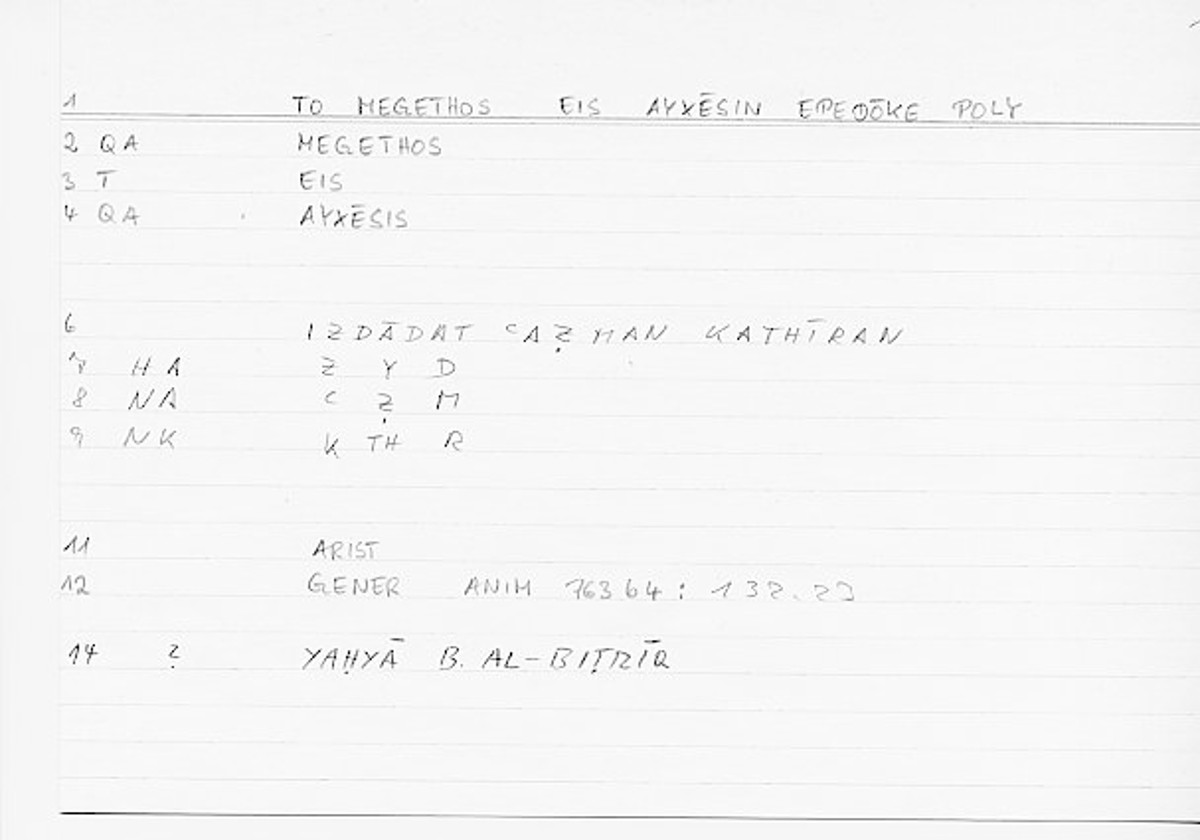 1 TO MEGETHOS EIS AYXĒSIN EPEDŌKE POLY
2 QA MEGETHOS
3 T EIS
4 QA AYXĒSIS
6 IZDĀDAT ʿAẒMAN KATHĪRAN
7 HA Z Y D
8 NA ʿ Ẓ M
9 NK K TH R
11 ARIST
12 GENER ANIM 763 b4: 132.23
14 ? YAḤYĀ B. AL-BIṬRĪQ